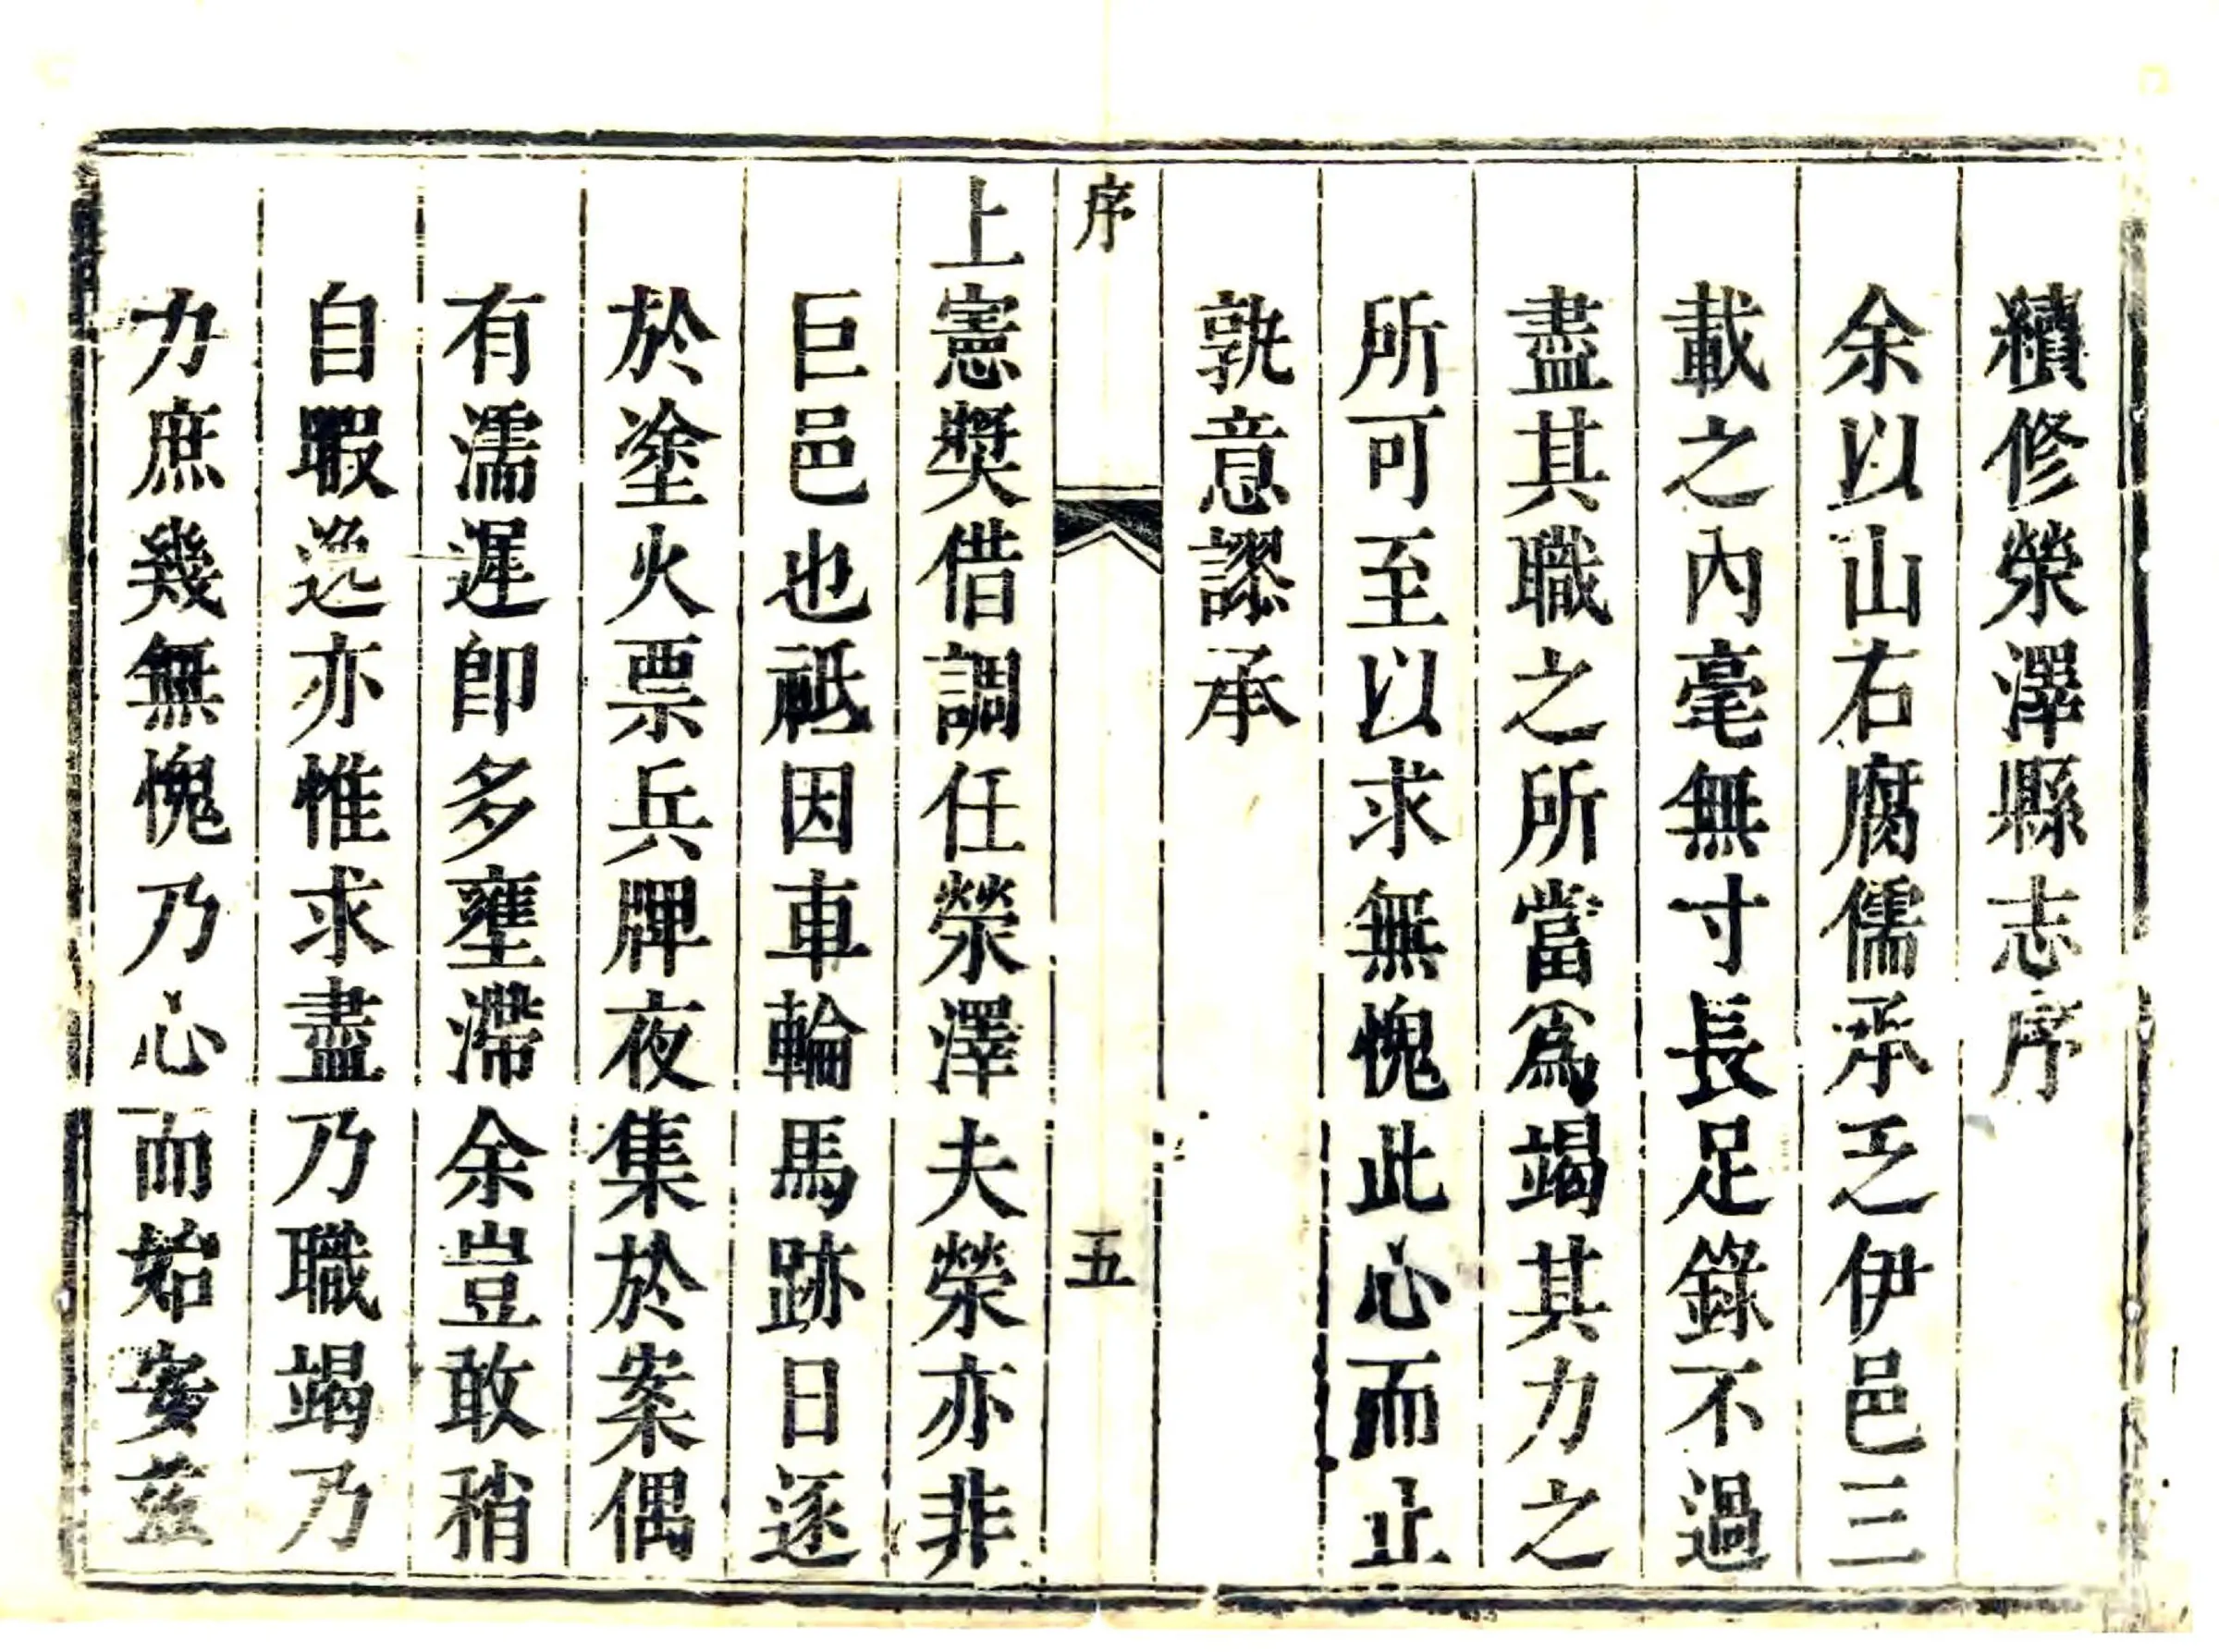 續修滎澤縣志序
余以山右腐儒承乏伊邑三
載之內毫無寸長足錄不過
盡其職之所當爲竭其力之
所可至以求無愧此心而止
孰意謬承
序
五
上憲獎借調任滎澤夫滎亦非
巨邑也祗因車輪馬跡日逐
於塗火票兵牌夜集於案偶
有濡遲卽多壅滯余豈敢稍
自暇逸亦惟求盡乃職竭乃
力庶幾無愧乃心而始安茲